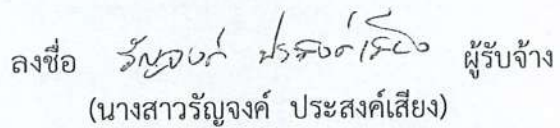 ลงชื่อ รัญจงค์ ประสงค์เสียง ผู้รับจ้าง
(นางสาวรัญจงค์ ประสงค์เสียง)